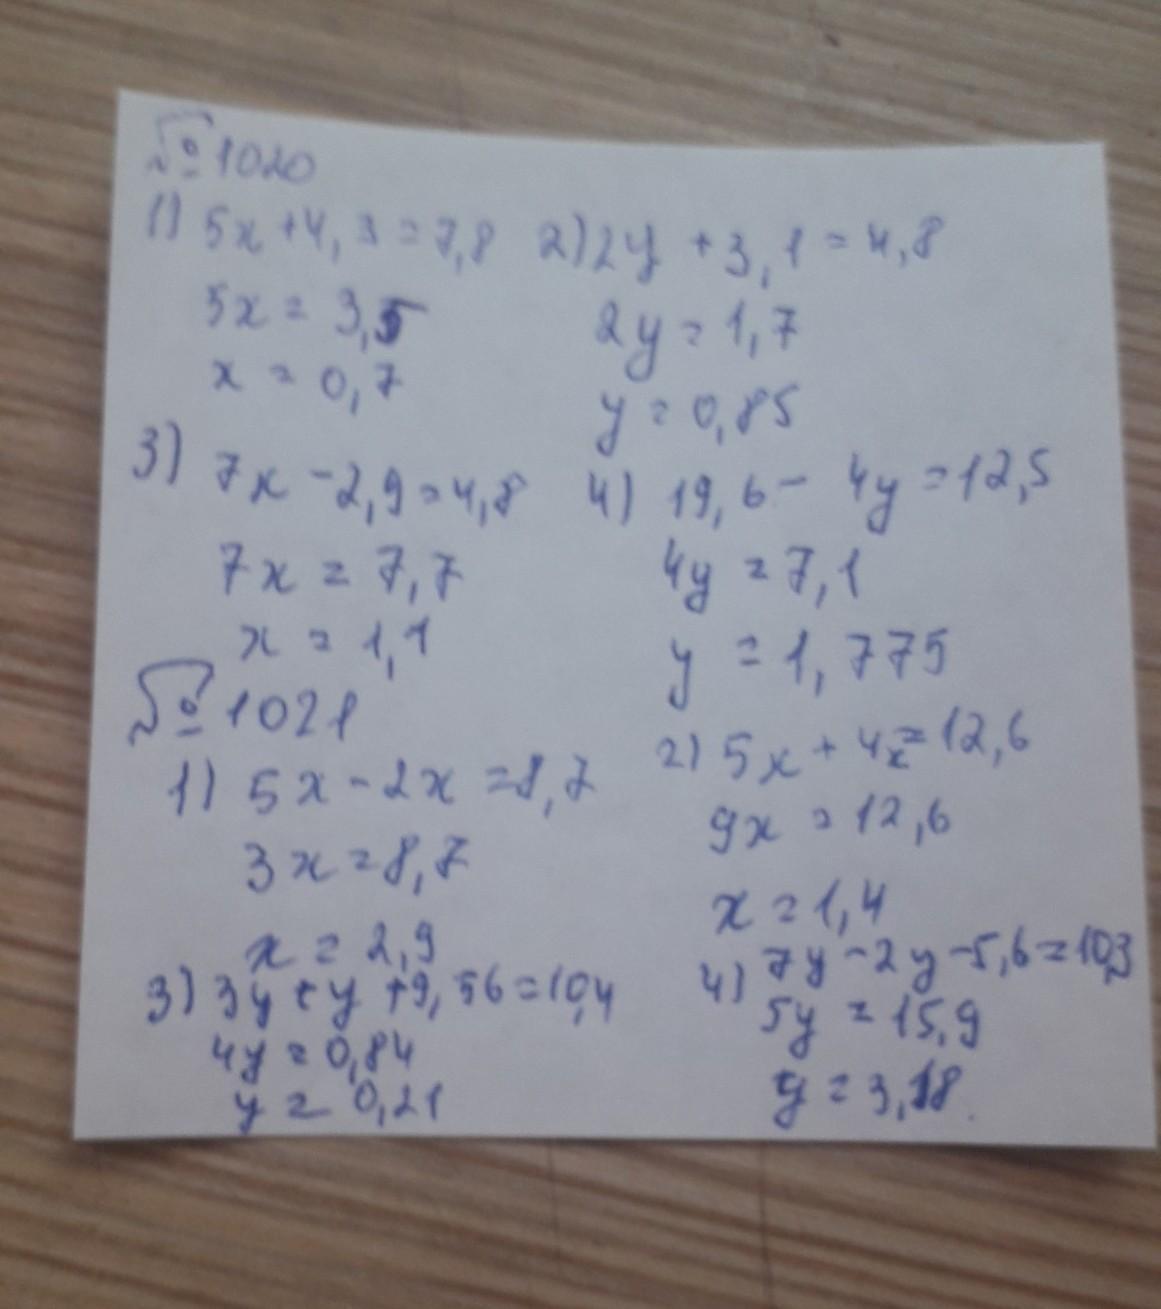 № 1020
1) 5x + 4,3 = 7,8 2) 2y + 3,1 = 4,8
5x = 3,5 2y = 1,7
x = 0,7 y = 0,85
3) 7x - 2,9 = 4,8 4) 19,6 - 4y = 12,5
7x = 7,7 4y = 7,1
x = 1,1 y = 1,775
№ 1021
1) 5x - 2x = 8,7 2) 5x + 4x = 12,6
3x = 8,7 9x = 12,6
x = 2,9 x = 1,4
3) 3y + y + 9,56 = 10,4 4) 7y - 2y - 5,6 = 10,3
4y = 0,84 5y = 15,9
y = 0,21 y = 3,18.